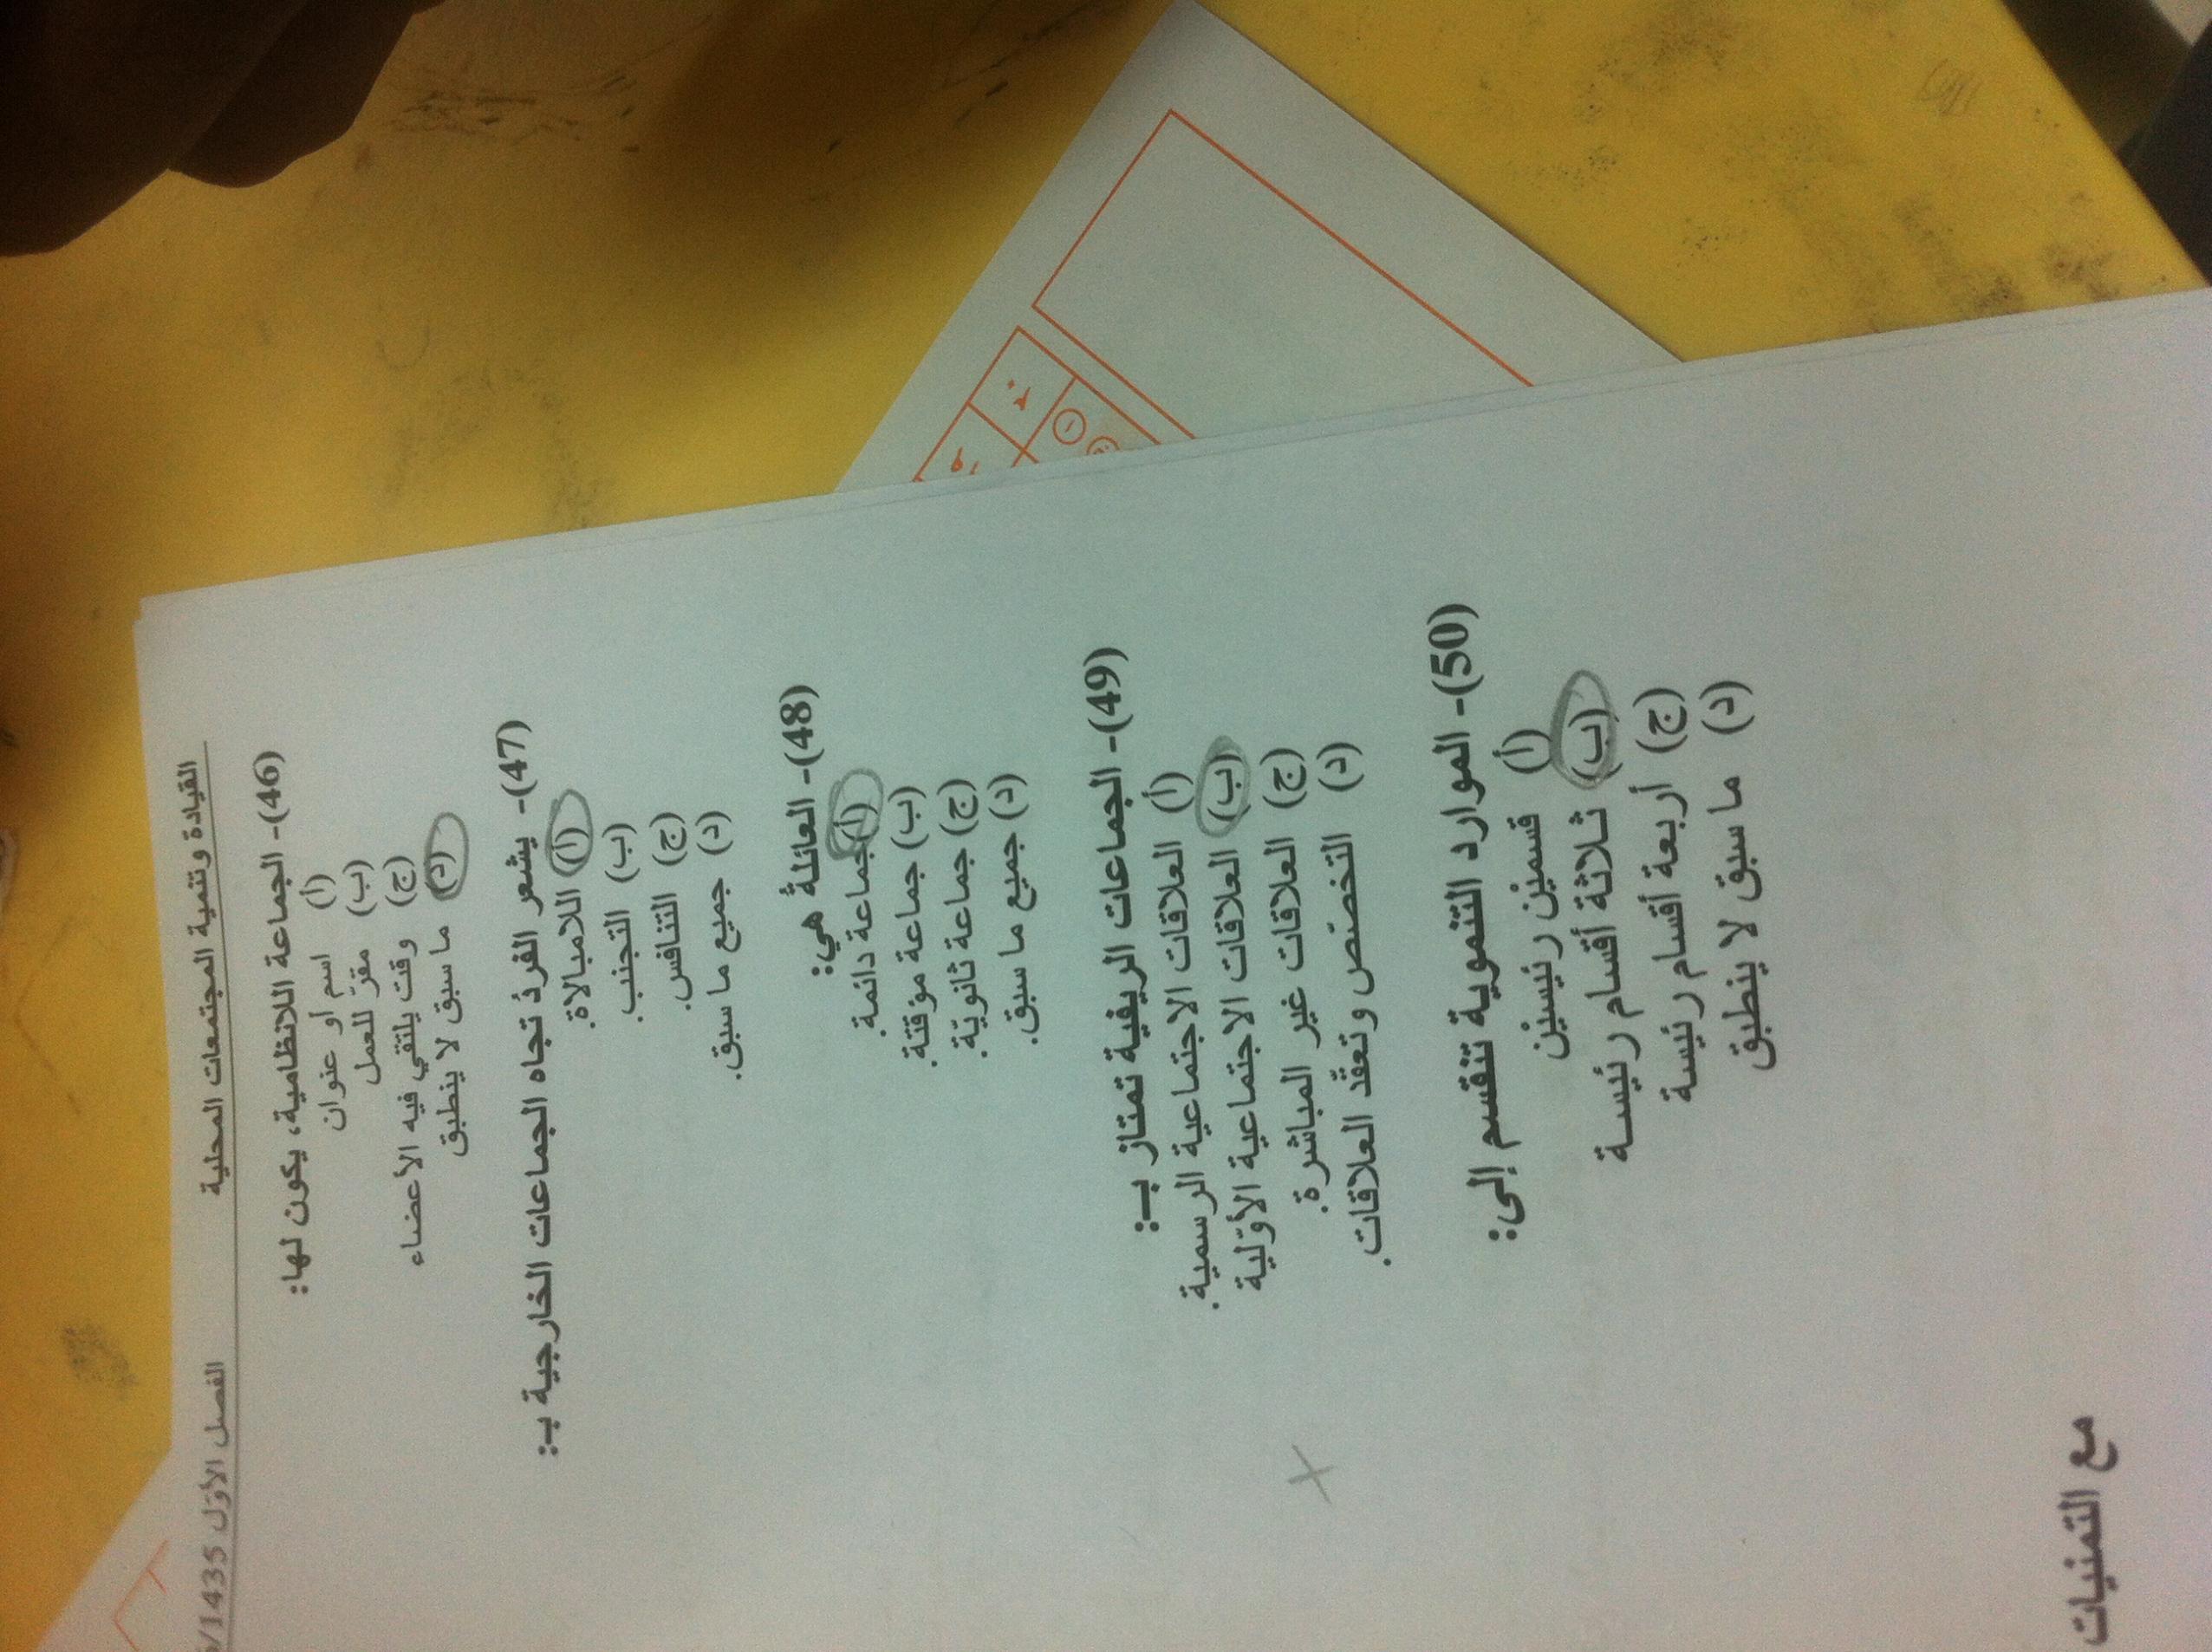 القيادة وتنمية المجتمعات المحلية الفصل الأوّل 1435/
(46)- الجماعة اللانظامية، يكون لها:
(أ) اسم أو عنوان
(ب) مقرّ للعمل
(ج) وقت يلتقي فيه الأعضاء
(د) ما سبق لا ينطبق
(47)- يشعر الفردُ تجاه الجماعات الخارجية بـ:
(أ) اللامبالاة.
(ب) التجنب.
(ج) التنافس.
(د) جميع ما سبق.
(48)- العائلةُ هي:
(أ) جماعة دائمة.
(ب) جماعة مؤقتة.
(ج) جماعة ثانويّة.
(د) جميع ما سبق.
(49)- الجماعات الريفية تمتاز بـ:
(أ) العلاقات الاجتماعية الرسمية.
(ب) العلاقات الاجتماعية الأوّلية
(ج) العلاقات غير المباشرة.
(د) التخصّص وتعقّد العلاقات.
(50)- الموارد التنموية تنقسم إلى:
(أ) قسمين رئيسين
(ب) ثلاثة أقسام رئيسة
(ج) أربعة أقسام رئيسة
(د) ما سبق لا ينطبق
مع التمنيات